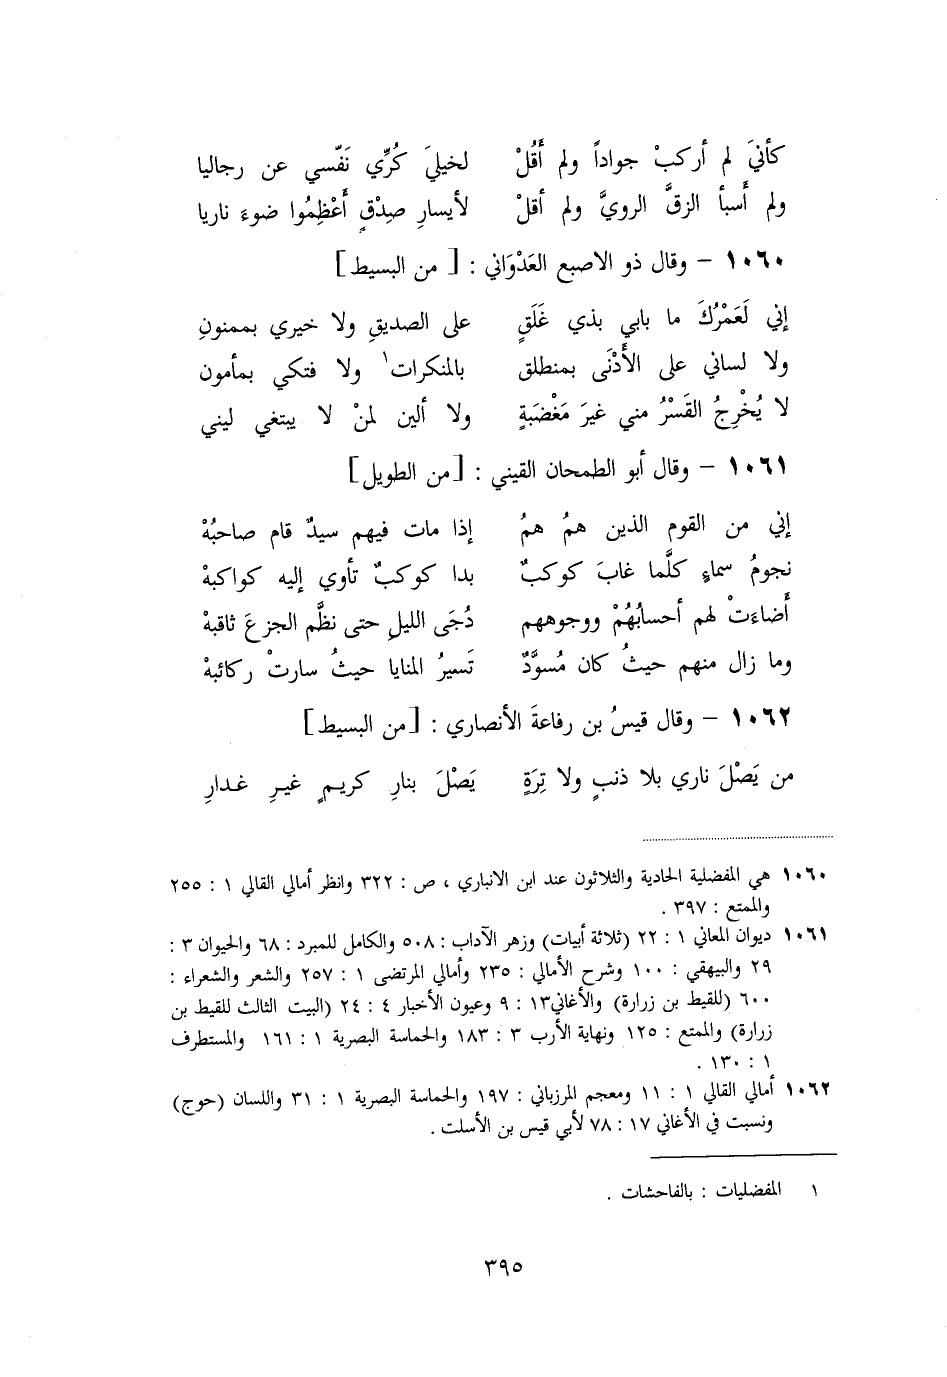 كأنيَ لم أركبْ جواداً ولم أَقُلْ لخيليَ كُرِّي نَفّسي عن رجاليا
ولم أَسبأ الزقَّ الرويَّ ولم أقلْ لأيسارِ صِدْقٍ أَعْظِمُوا ضوءَ ناريا
١٠٦٠ – وقال ذو الاصبع العَدْوَاني : [ من البسيط]
إني لَعَمْرُكَ ما بابي بذي غَلَقٍ على الصديقِ ولا خيري بممنونِ
ولا لساني على الأَدْنَى بمنطلق بالمنكرات١ ولا فتكي بمأمون
لا يُخْرِجُ القَسْرُ مني غيرَ مَغْضَبَةٍ ولا ألين لمنْ لا يبتغي ليني
١٠٦١ – وقال أبو الطمحان القيني : [من الطويل]
إني من القوم الذين همُ همُ إذا مات فيهم سيدٌ قام صاحبُهْ
نجومُ سماءٍ كلَّما غابَ كوكبٌ بدا كوكبٌ تأوي إليه كواكبهْ
أَضاءَتْ لهم أحسابُهُمْ ووجوههم دُجَى الليلِ حتى نظَّم الجزعَ ثاقبهْ
وما زال منهم حيثُ كان مُسوَّدٌ تَسيرُ المنايا حيثُ سارتْ ركائبهْ
١٠٦٢ – وقال قيسُ بن رفاعةَ الأنصاري : [من البسيط]
من يَصْلَ ناري بلا ذنبٍ ولا تِرَةٍ يَصْلَ بنارِ كريمٍ غيرِ غدارِ
١٠٦٠ هي المفضلية الحادية والثلاثون عند ابن الانباري ، ص : ٣٢٢ وانظر أمالي القالي ١ : ٢٥٥
والممتع : ٣٩٧ .
١٠٦١ ديوان المعاني ١ : ٢٢ (ثلاثة أبيات) وزهر الآداب : ٥٠٨ والكامل للمبرد : ٦٨ والحيوان ٣ :
٢٩ والبيهقي : ١٠٠ وشرح الأمالي : ٢٣٥ وأمالي المرتضى ١ : ٢٥٧ والشعر والشعراء :
٦٠٠ (للقيط بن زرارة) والأغاني١٣ : ٩ وعيون الأخبار ٤ : ٢٤ (البيت الثالث للقيط بن
زرارة) والممتع : ١٢٥ ونهاية الأرب ٣ : ١٨٣ والحماسة البصرية ١ : ١٦١ والمستطرف
١ : ١٣٠ .
١٠٦٢ أمالي القالي ١ : ١١ ومعجم المرزباني : ١٩٧ والحماسة البصرية ١ : ٣١ واللسان (حوج)
ونسبت في الأغاني ١٧ : ٧٨ لأبي قيس بن الأسلت .
١ المفضليات : بالفاحشات .
٣٩٥